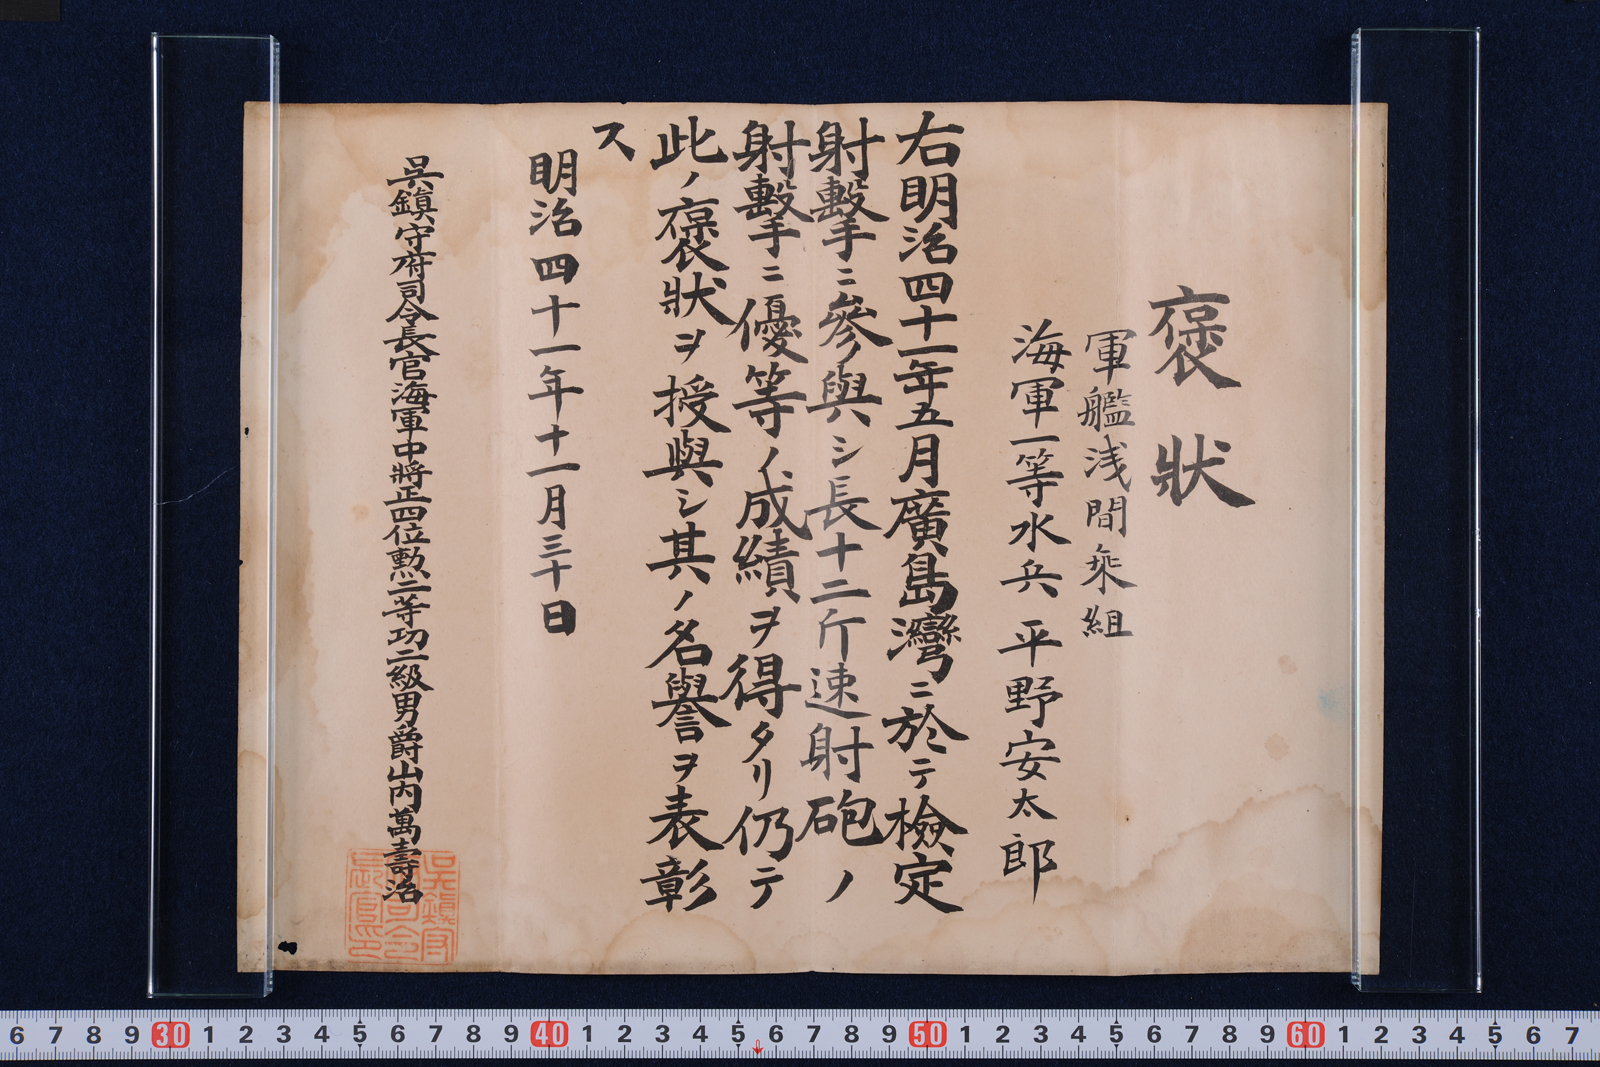 褒狀
軍艦浅間乘組
海軍一等水兵 平野安太郎
右明治四十一年五月廣島灣ニ於テ檢定
射擊ニ參與シ長十二斤速射砲ノ
射擊ニ優等ノ成績ヲ得タリ仍テ
此ノ褒狀ヲ授與シ其ノ名譽ヲ表彰
ス
明治四十一年十一月三十日
呉鎮守府司令長官海軍中將正四位勲二等功二級男爵山内萬壽治
6 7 8 9 30 1 2 3 4 5 6 7 8 9 40 1 2 3 4 5 6 7 8 9 50 1 2 3 4 5 6 7 8 9 60 1 2 3 4 5 6 7